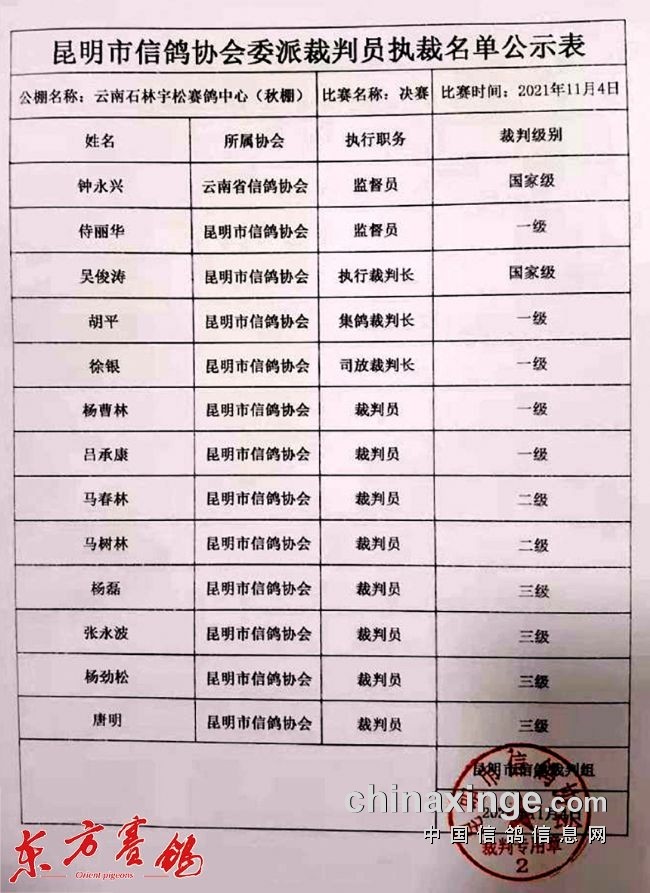 昆明市信鸽协会委派裁判员执裁名单公示表
公棚名称：云南石林宇松赛鸽中心（秋棚） 比赛名称：决赛 比赛时间：2021年11月4日
姓名 所属协会 执行职务 裁判级别
钟永兴 云南省信鸽协会 监督员 国家级
侍丽华 昆明市信鸽协会 监督员 一级
吴俊涛 昆明市信鸽协会 执行裁判长 国家级
胡平 昆明市信鸽协会 集鸽裁判长 一级
徐银 昆明市信鸽协会 司放裁判长 一级
杨曹林 昆明市信鸽协会 裁判员 一级
吕承康 昆明市信鸽协会 裁判员 一级
马春林 昆明市信鸽协会 裁判员 二级
马树林 昆明市信鸽协会 裁判员 二级
杨磊 昆明市信鸽协会 裁判员 三级
张永波 昆明市信鸽协会 裁判员 三级
杨劲松 昆明市信鸽协会 裁判员 三级
唐明 昆明市信鸽协会 裁判员 三级
昆明市信鸽裁判组
chinaxinge.com
中国信鸽信息网
裁判专用章
2
东方赛鸽
Orient pigeons